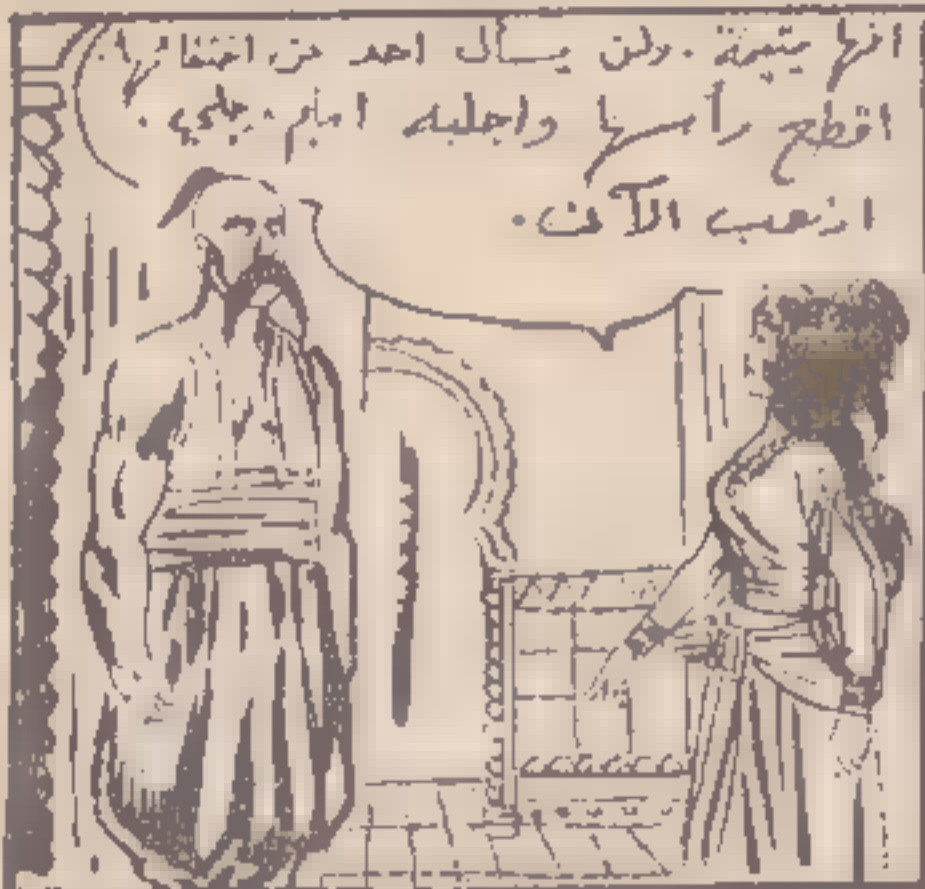 انها يتيمة . ولن يسأل احد عن اختفائها.
اقطع رأسها واجلبه امام بابي .
اذهب الآن .